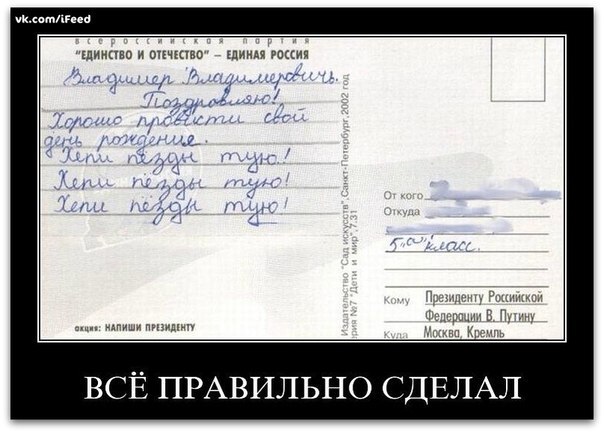 vk.com/iFeed
всероссийская партия
"ЕДИНСТВО И ОТЕЧЕСТВО" – ЕДИНАЯ РОССИЯ
Владимер Владимеровичь.
Поздравляю!
Хорошо провисти свой
день рождение.
Хепи пёзды тую!
Хепи пёзды тую!
Хепи пёзды тую!
акция: НАПИШИ ПРЕЗИДЕНТУ
Издательство "Сад искусств", Санкт-Петербург, 2002 год
рия №7 "Дети и мир", 7.31
От кого
Откуда
5 "а" класс.
Кому Президенту Российской
Федерации В. Путину
Куда Москва, Кремль
ВСЁ ПРАВИЛЬНО СДЕЛАЛ